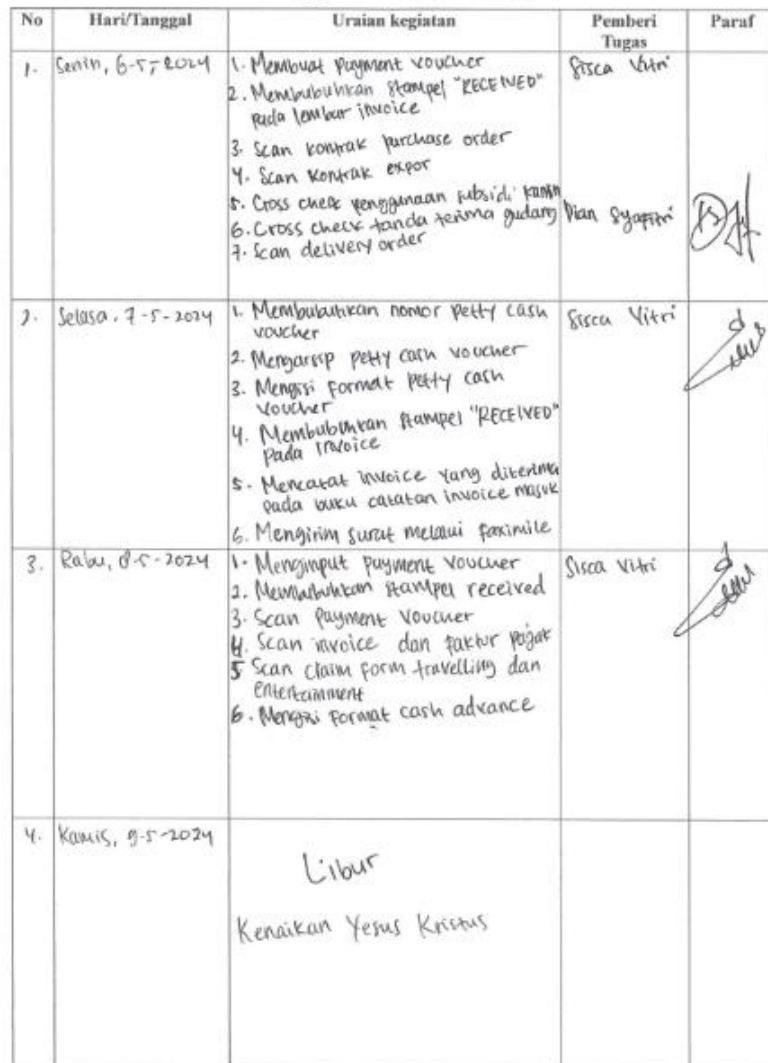 No Hari/Tanggal Uraian kegiatan Pemberi Tugas Paraf
1. Senin, 6-5-2024 1. Membuat Payment Voucher Sisca Vitri
2. Membubuhkan stampel "RECEIVED"
pada lembar invoice
3. Scan kontrak purchase order
4. Scan kontrak expor
5. Cross check penggunaan subsidi kantin
6. Cross check tanda terima gudang Dian Syafitri
7. Scan delivery order
2. Selasa, 7-5-2024 1. Membubuhkan nomor petty cash Sisca Vitri
voucher
2. Mengarsip petty cash voucher
3. Mengisi format petty cash
voucher
4. Membubuhkan stampel "RECEIVED"
pada invoice
5. Mencatat invoice yang diterima
pada buku catatan invoice masuk
6. Mengirim surat melalui faximile
3. Rabu, 8-5-2024 1. Menginput payment voucher Sisca Vitri
2. Membubuhkan stampel received
3. Scan Payment Voucher
4. Scan invoice dan faktur pajak
5 Scan claim form travelling dan
entertainment
6. Mengisi format cash advance
4. Kamis, 9-5-2024
Libur
Kenaikan Yesus Kristus